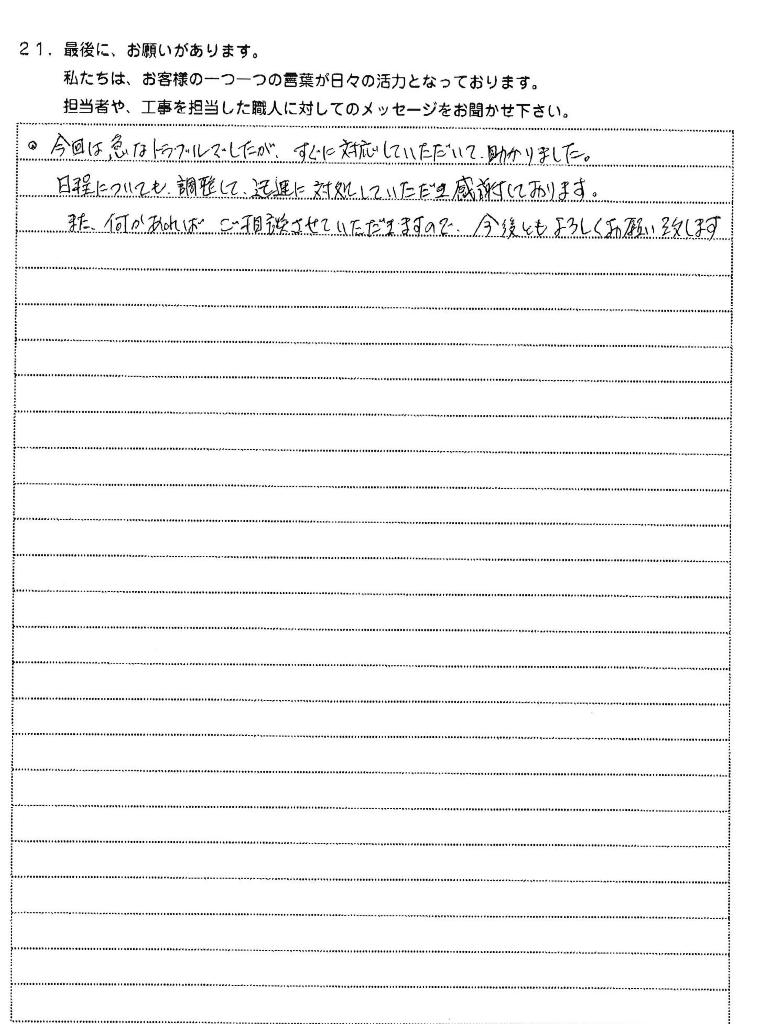 21．最後に、お願いがあります。
私たちは、お客様の一つ一つの言葉が日々の活力となっております。
担当者や、工事を担当した職人に対してのメッセージをお聞かせ下さい。
。今回は急なトラブルでしたが、すぐに対応していただいて、助かりました。
日程についても、調整して、迅速に対処していただき感謝しております。
また、何かあれば ご相談させていただきますので、今後ともよろしくお願い致します